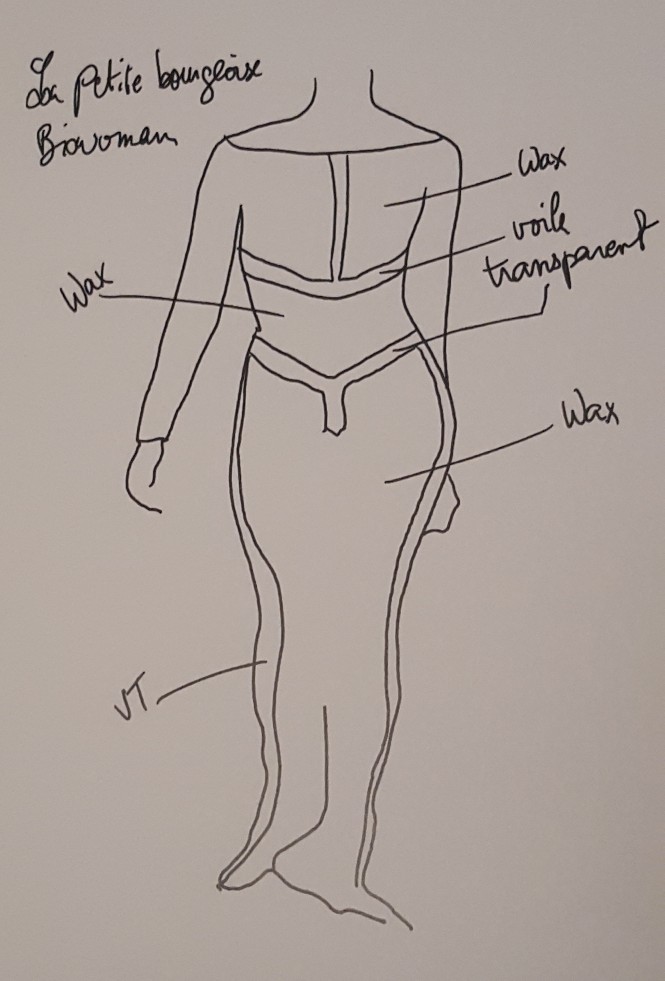 La petite bourgeoise
Biowoman
Wax
voile
transparent
Wax
Wax
VT